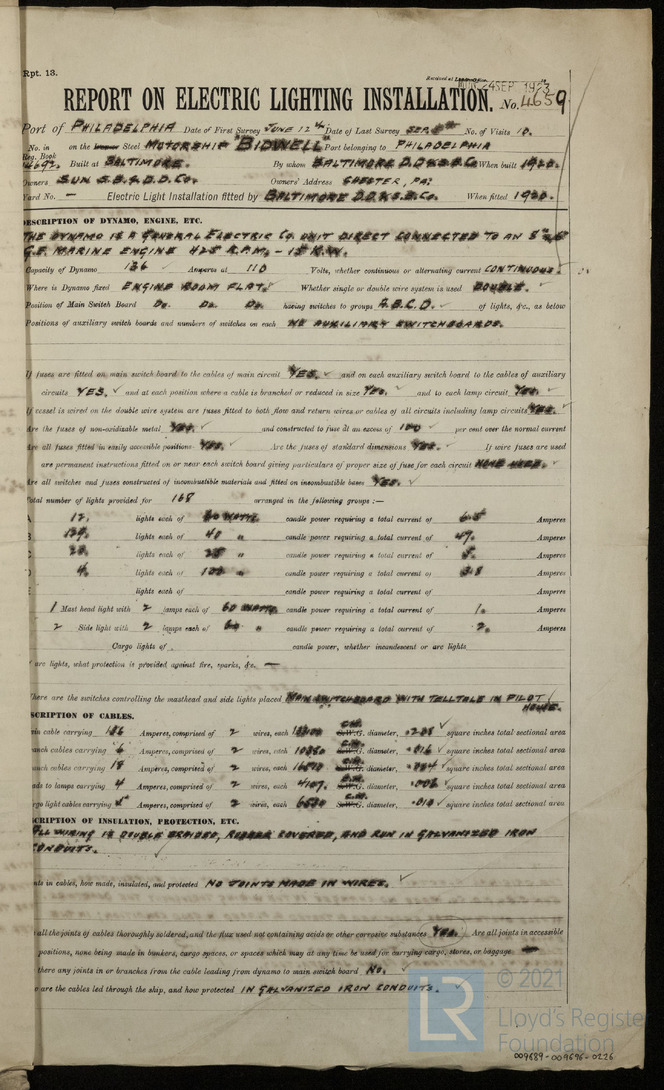 Rpt. 13.
Received at London Office
MON. 24 SEP 1923
REPORT ON ELECTRIC LIGHTING INSTALLATION. No. 4659
Port of PHILADELPHIA Date of First Survey JUNE 12th Date of Last Survey SEP. No. of Visits 10.
No. in Reg. Book on the Iron or Steel MOTORSHIP "BIDWELL" Port belonging to PHILADELPHIA
Built at BALTIMORE. By whom BALTIMORE D.D. & S.B. Co When built 1920.
Owners SUN S.B. & D.D. Co. Owners' Address CHESTER, PA.
Yard No. — Electric Light Installation fitted by BALTIMORE D.D. & S.B. Co. When fitted 1920.
DESCRIPTION OF DYNAMO, ENGINE, ETC.
THE DYNAMO IS A GENERAL ELECTRIC CO. UNIT DIRECT CONNECTED TO AN
G.E. MARINE ENGINE 425 R.P.M. - 15 K.W.
Capacity of Dynamo 136 Amperes at 110 Volts, whether continuous or alternating current CONTINUOUS.
Where is Dynamo fixed ENGINE ROOM FLAT. Whether single or double wire system is used DOUBLE.
Position of Main Switch Board Do. Do. Do. having switches to groups A.B.C.D. of lights, &c., as below
Positions of auxiliary switch boards and numbers of switches on each NO AUXILIARY SWITCHBOARDS.
If fuses are fitted on main switch board to the cables of main circuit YES. and on each auxiliary switch board to the cables of auxiliary
circuits YES. and at each position where a cable is branched or reduced in size YES. and to each lamp circuit YES.
If vessel is wired on the double wire system are fuses fitted to both flow and return wires or cables of all circuits including lamp circuits YES.
Are the fuses of non-oxidizable metal YES. and constructed to fuse at an excess of 100 per cent over the normal current
Are all fuses fitted in easily accessible positions YES. Are the fuses of standard dimensions YES. If wire fuses are used
are permanent instructions fitted on or near each switch board giving particulars of proper size of fuse for each circuit NONE USED.
Are all switches and fuses constructed of incombustible materials and fitted on incombustible bases YES.
Total number of lights provided for 168 arranged in the following groups :—
A 12. lights each of 60 WATTS. candle power requiring a total current of 6.5 Amperes
B lights each of 40 " candle power requiring a total current of 49. Amperes
C lights each of 25 " candle power requiring a total current of 5. Amperes
D 4. lights each of " candle power requiring a total current of 3.8 Amperes
E lights each of candle power requiring a total current of Amperes
1 Mast head light with 2 lamps each of 60 WATTS candle power requiring a total current of 1. Amperes
2 Side light with 2 lamps each of 60 " candle power requiring a total current of 2. Amperes
Cargo lights of candle power, whether incandescent or arc lights
If arc lights, what protection is provided against fire, sparks, &c. —
Where are the switches controlling the masthead and side lights placed MAIN SWITCHBOARD WITH TELLTALE IN PILOT
HOUSE.
DESCRIPTION OF CABLES.
Main cable carrying 136 Amperes, comprised of 2 wires, each C.M. S.W.G. diameter, square inches total sectional area
Branch cables carrying 6 Amperes, comprised of 2 wires, each 10380 C.M. S.W.G. diameter, square inches total sectional area
Branch cables carrying 18 Amperes, comprised of 2 wires, each C.M. S.W.G. diameter, square inches total sectional area
Leads to lamps carrying 4 Amperes, comprised of 2 wires, each 4107. C.M. S.W.G. diameter, square inches total sectional area
Cargo light cables carrying Amperes, comprised of 2 wires, each 6530 C.M. S.W.G. diameter, .010 square inches total sectional area
DESCRIPTION OF INSULATION, PROTECTION, ETC.
ALL WIRING IS DOUBLE BRAIDED, RUBBER COVERED, AND RUN IN GALVANIZED IRON
CONDUITS.
Joints in cables, how made, insulated, and protected NO JOINTS MADE IN WIRES.
all the joints of cables thoroughly soldered, and the flux used not containing acids or other corrosive substances YES. Are all joints in accessible
positions, none being made in bunkers, cargo spaces, or spaces which may at any time be used for carrying cargo, stores, or baggage
there any joints in or branches from the cable leading from dynamo to main switch board NO.
are the cables led through the ship, and how protected IN GALVANIZED IRON CONDUITS.
© 2021
LR
Lloyd's Register
Foundation
009689-009696-0226